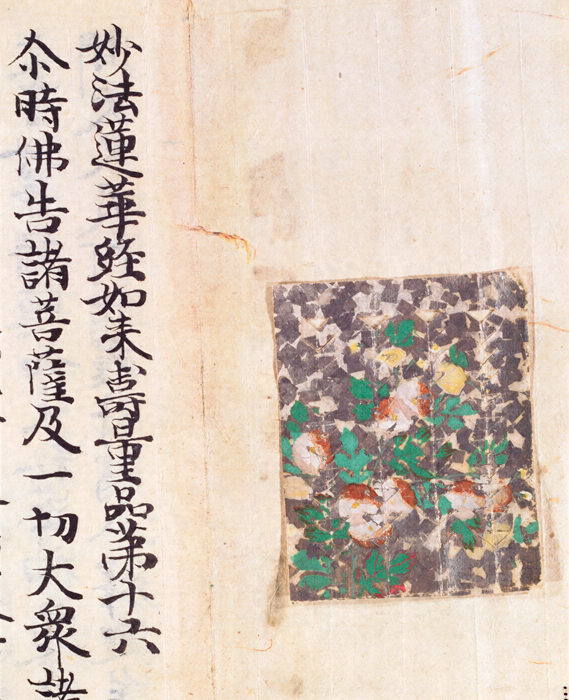 妙法蓮華経如来壽量品第十六
尒時佛告諸菩薩及一切大衆諸